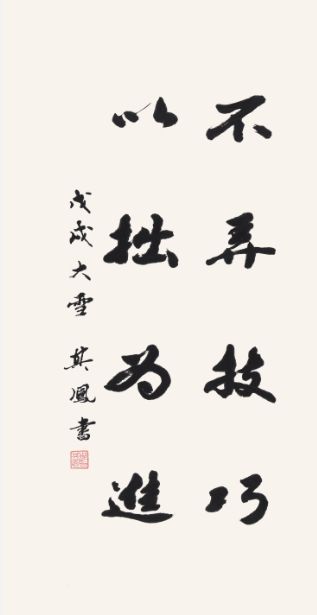 不弄技巧
以拙为進
戊戌大雪 其鳳書